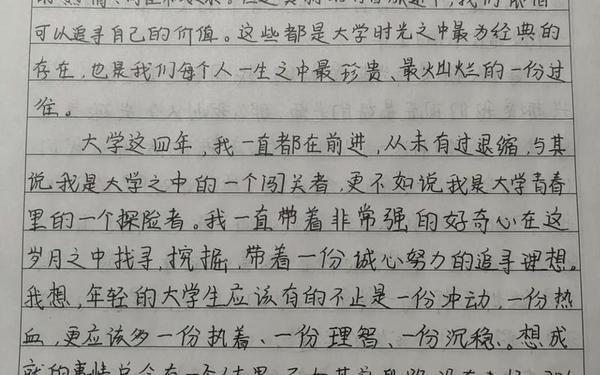 可以追寻自己的价值。这些都是大学时光之中最为经典的
存在，也是我们每个人一生之中最珍贵、最灿烂的一份过
往。
大学这四年，我一直都在前进，从未有过退缩，与其
说我是大学之中的一个闯关者，更不如说我是大学青春
里的一个探险者。我一直带着非常强的好奇心在这
岁月之中找寻，挖掘，带着一份诚心努力的追寻理想。
我想，年轻的大学生应该有的不止是一份冲动，一份热
血，更应该多一份执着、一份理智、一份沉稳。想成